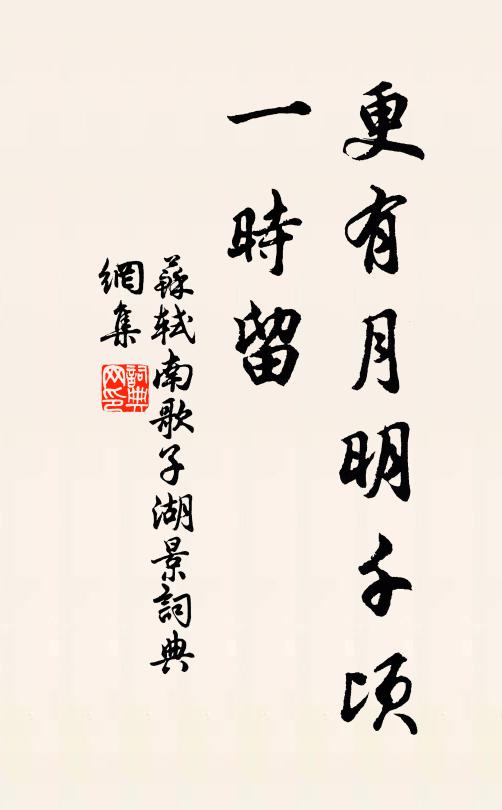 更有月明千頃
一時留
蘇軾南歌子湖景詞典
網集
詞典
网印